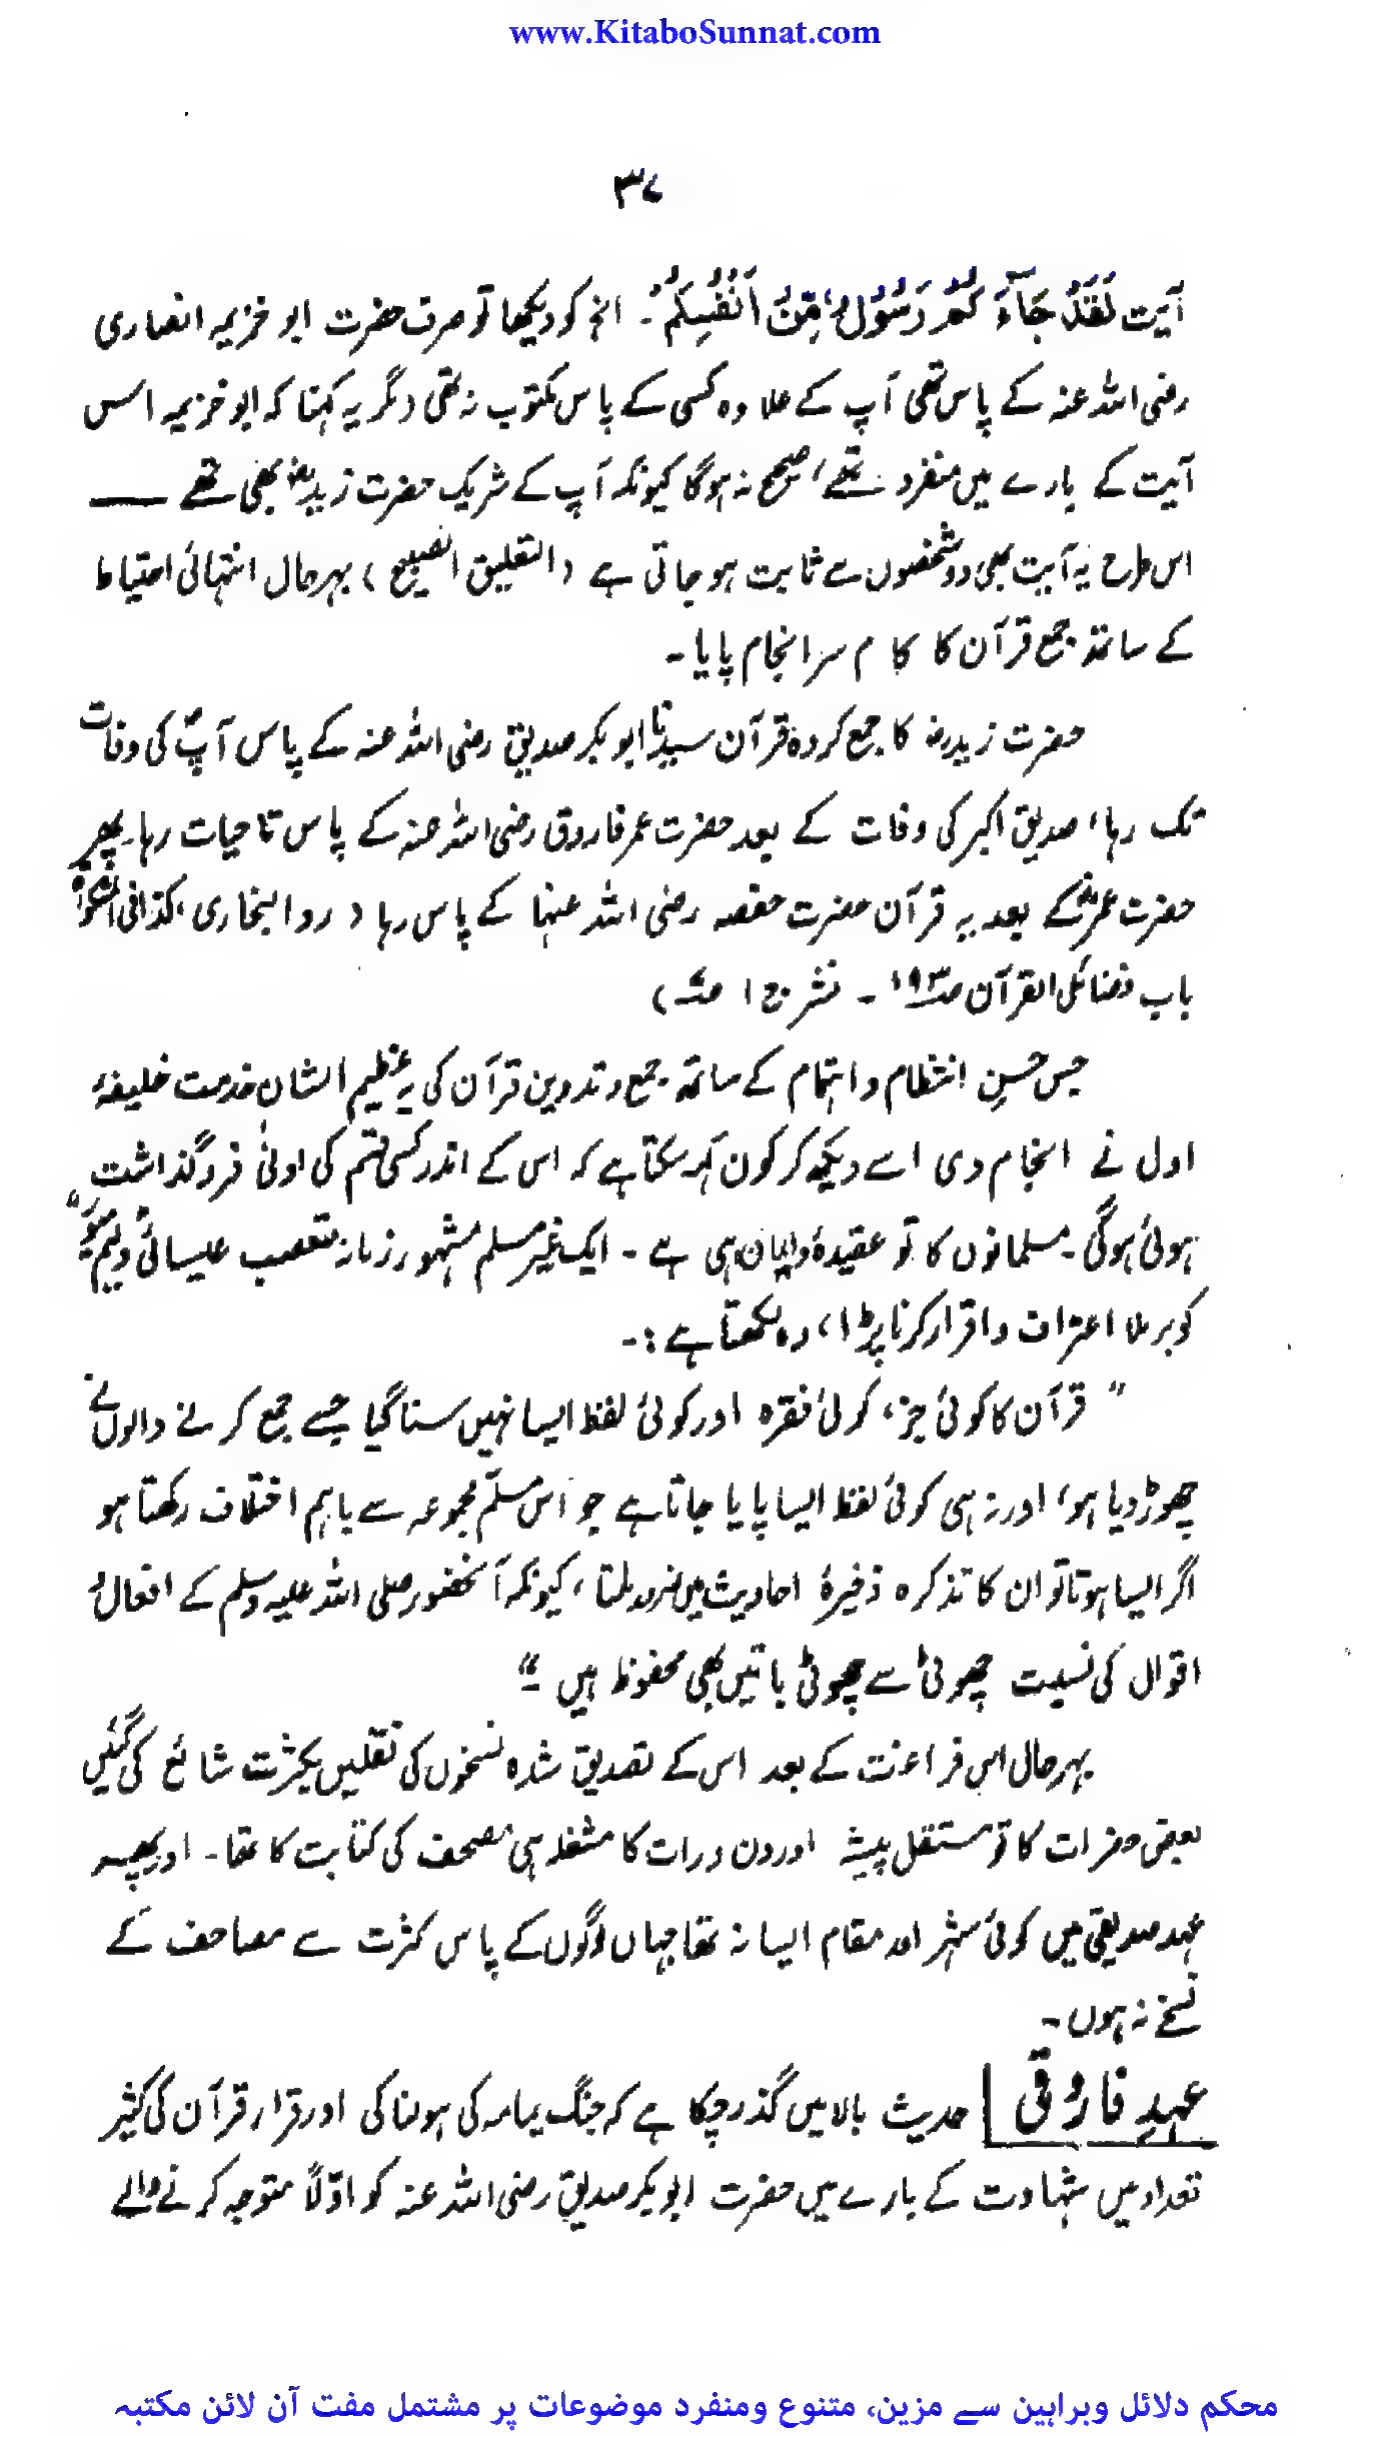 www.KitaboSunnat.com
۳۷
آیت لَقَدْ جَآءَ کُمْ رَسُوْلٌ مِّنْ اَنْفُسِکُمْ۔ الخ کو دیکھا تو صرف حضرت ابو خزیمہ انصاری
رضی اللہ عنہ کے پاس تھی آپ کے علاوہ کسی کے پاس مکتوب نہ تھی دگر یہ کہنا کہ ابو خزیمہ اس
آیت کے بارے میں منفرد تھے، صحیح نہ ہوگا کیونکہ آپ کے شریک حضرت زیدؓ بھی تھے ——
اس طرح یہ آیت بھی دو شخصوں سے ثابت ہو جاتی ہے (التعلیق الصبیح) بہرحال انتہائی احتیاط
کے ساتھ جمع قرآن کا کام سرانجام پایا۔
حضرت زیدرض کا جمع کردہ قرآن سیدنا ابوبکر صدیق رضی اللہ عنہ کے پاس آپؓ کی وفات
تک رہا، صدیق اکبر کی وفات کے بعد حضرت عمر فاروق رضی اللہ عنہ کے پاس تا حیات رہا۔ پھر
حضرت عمرؓ کے بعد یہ قرآن حضرت حفصہ رضی اللہ عنہا کے پاس رہا (روا البخاری، کذافی المشکوٰۃ
باب فضائل القرآن ص۱۹۳ ۔ نشر ج۱ ص)
جس حسنِ انتظام و اہتمام کے ساتھ جمع و تدوین قرآن کی یہ عظیم الشان خدمت خلیفۂ
اول نے انجام دی اسے دیکھ کر کون کہہ سکتا ہے کہ اس کے اندر کسی قسم کی ادنیٰ فروگذاشت
ہوئی ہوگی۔ مسلمانوں کا تو عقیدۂ و ایمان ہی ہے ۔ ایک غیر مسلم مشہور زمانہ متعصب عیسائی "ولیم میور"
کو برملا اعتراف و اقرار کرنا پڑا، وہ لکھتا ہے :۔
" قرآن کا کوئی جز، کوئی فقرہ اور کوئی لفظ ایسا نہیں سنا گیا جسے جمع کرنے والوں نے
چھوڑ دیا ہو، اور نہ ہی کوئی لفظ ایسا پایا جاتا ہے جو اس مسلّم مجموعہ سے باہم اختلاف رکھتا ہو
اگر ایسا ہوتا تو ان کا تذکرہ ذخیرۂ احادیث میں ضرور ملتا، کیونکہ آنحضور صلی اللہ علیہ وسلم کے افعال و
اقوال کی نسبت چھوٹی سے چھوٹی باتیں بھی محفوظ ہیں ۔"
بہرحال اس فراغت کے بعد اس کے تصدیق شدہ نسخوں کی نقلیں بکثرت شائع کی گئیں
بعض حضرات کا تو مستقل پیشہ اور دن و رات کا مشغلہ ہی مصحف کی کتابت کا تھا۔ اور پھر
عہد صدیقی میں کوئی شہر اور مقام ایسا نہ تھا جہاں لوگوں کے پاس کثرت سے مصاحف کے
نسخے نہ ہوں۔
عہدِ فاروقی حدیث بالا میں گذر چکا ہے کہ جنگ یمامہ کی ہولناکی اور قراء قرآن کی کثیر
تعداد میں شہادت کے بارے میں حضرت ابوبکر صدیق رضی اللہ عنہ کو اوّلاً متوجہ کرنے والے
محکم دلائل وبراہین سے مزین، متنوع ومنفرد موضوعات پر مشتمل مفت آن لائن مکتبہ